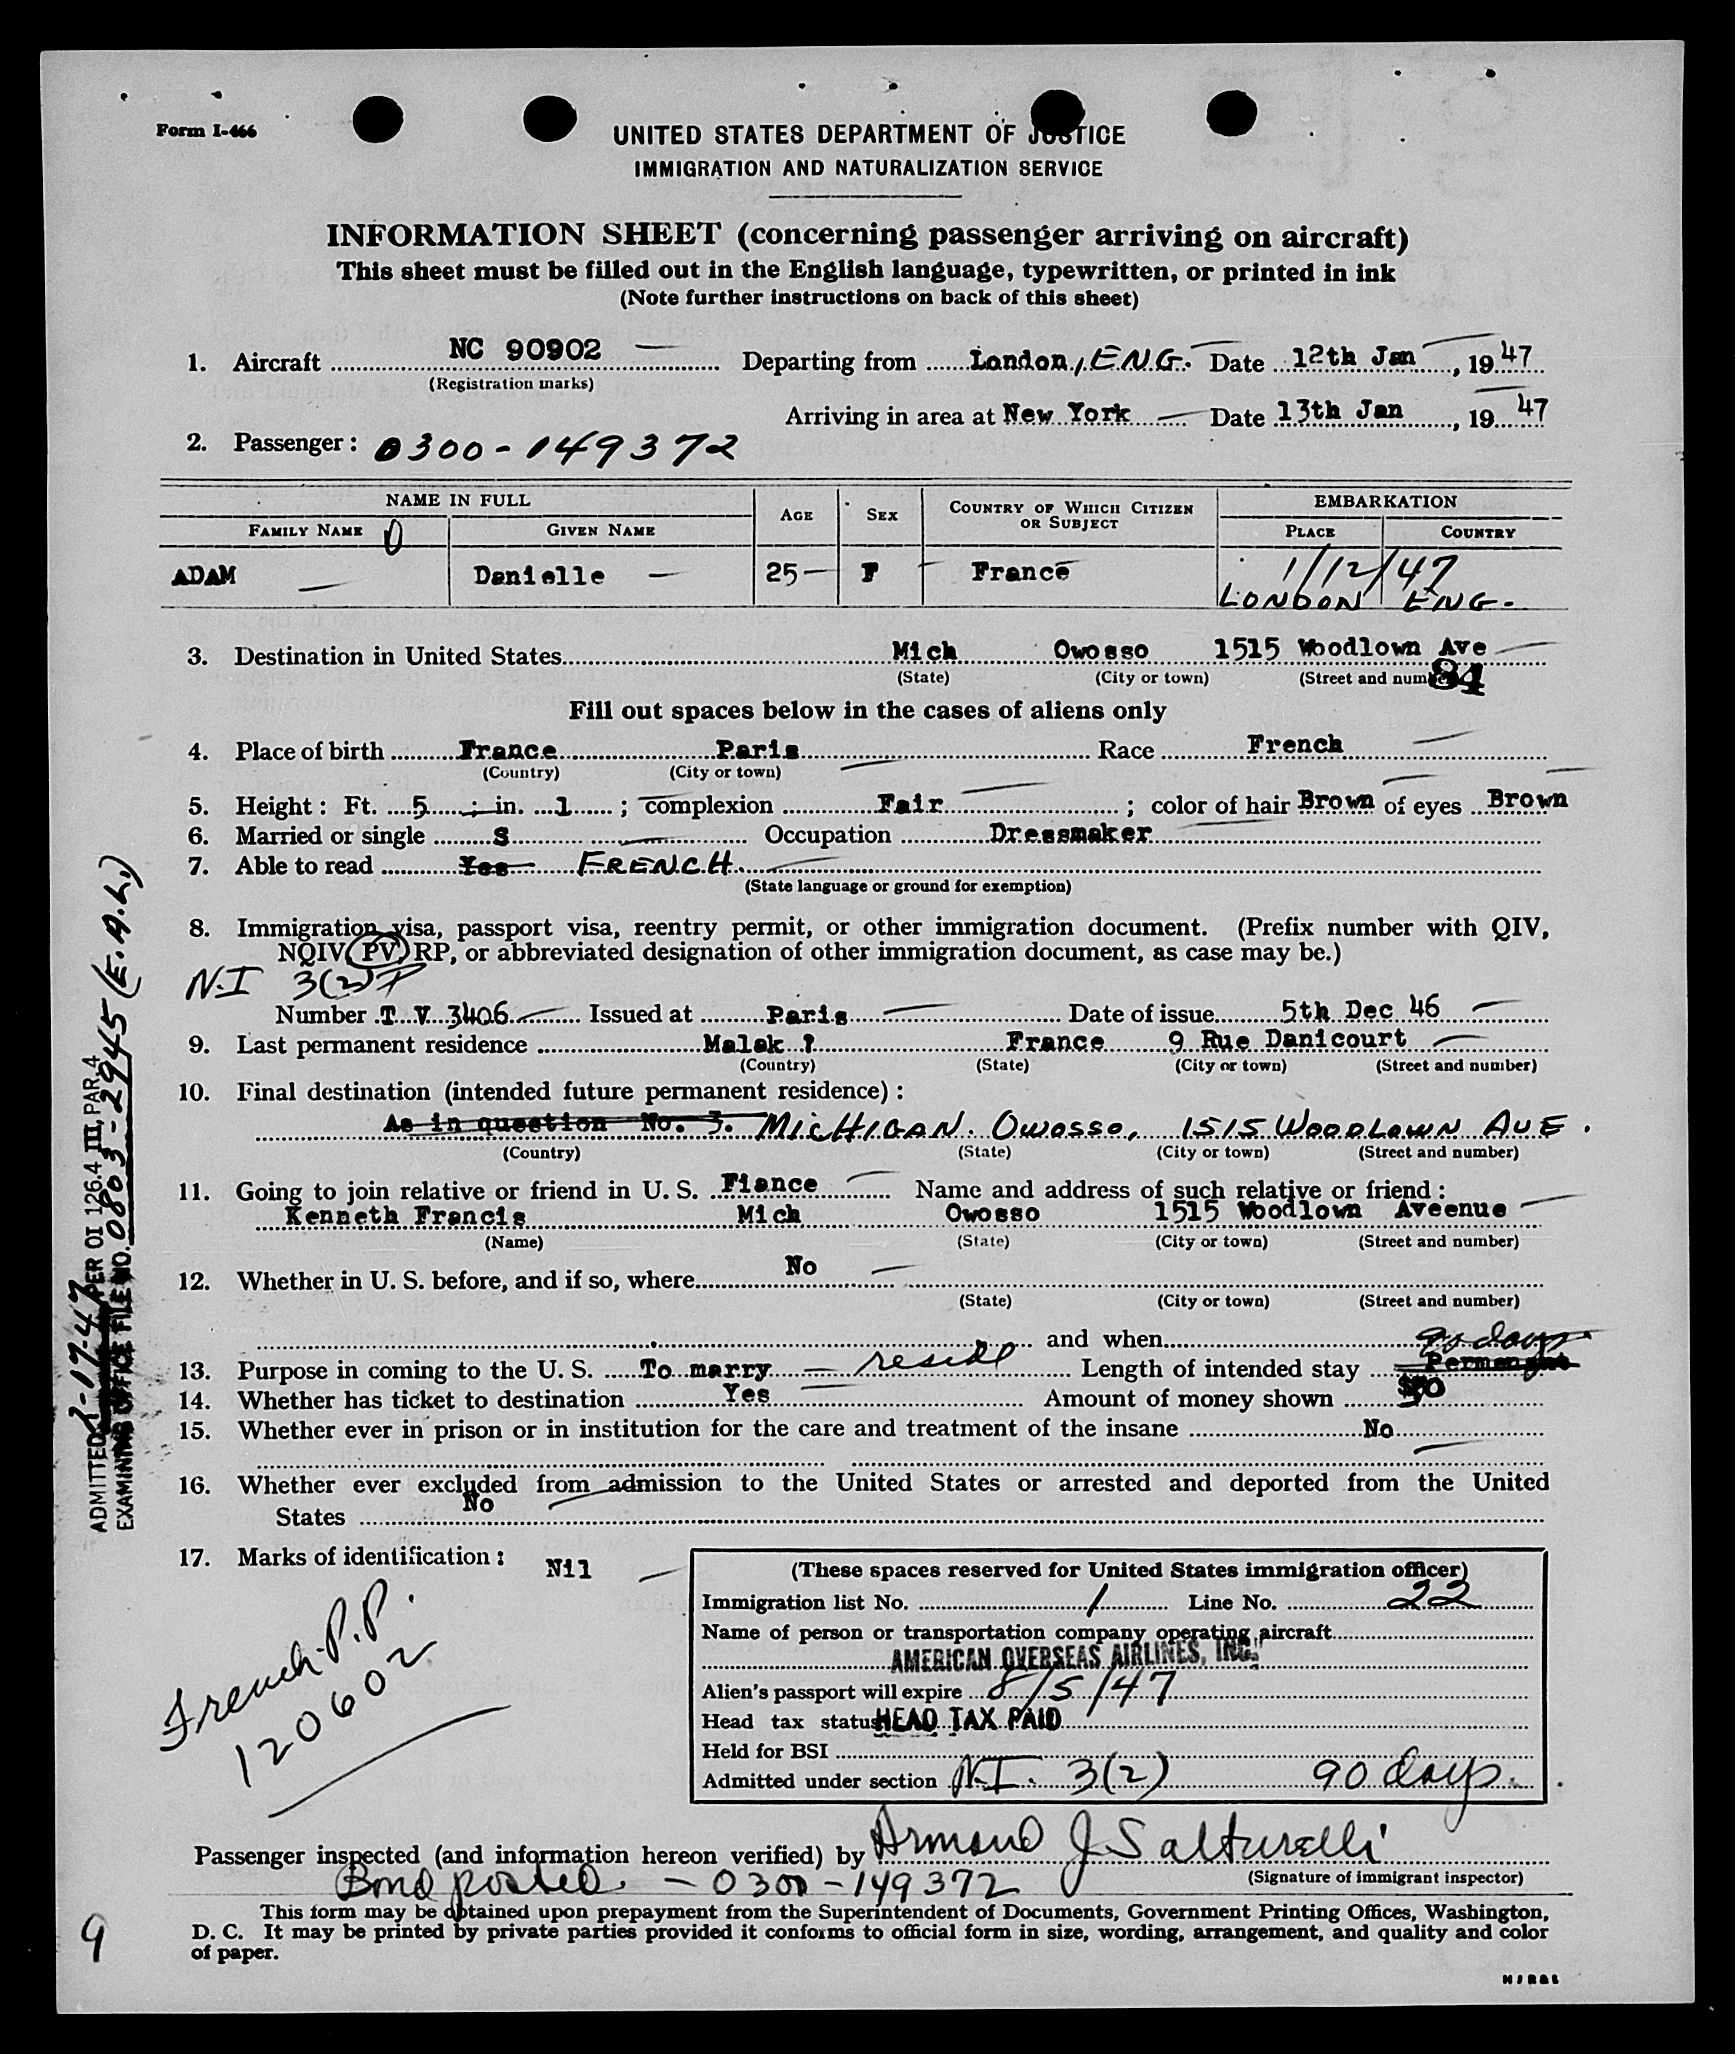 Form I-466
UNITED STATES DEPARTMENT OF JUSTICE
IMMIGRATION AND NATURALIZATION SERVICE
INFORMATION SHEET (concerning passenger arriving on aircraft)
This sheet must be filled out in the English language, typewritten, or printed in ink
(Note further instructions on back of this sheet)
1. Aircraft NC 90902 Departing from London, ENG. Date 12th Jan, 1947
(Registration marks)
Arriving in area at New York Date 13th Jan, 1947
2. Passenger: 0300-149372
NAME IN FULL AGE SEX COUNTRY OF WHICH CITIZEN OR SUBJECT EMBARKATION
FAMILY NAME GIVEN NAME PLACE COUNTRY
ADAM Danielle 25 F France 1/12/47
LONDON ENG.
3. Destination in United States Mich Owosso 1515 Woodlown Ave
(State) (City or town) (Street and number) 84
Fill out spaces below in the cases of aliens only
4. Place of birth France Paris Race French
(Country) (City or town)
5. Height: Ft. 5; in. 1; complexion Fair; color of hair Brown of eyes Brown
6. Married or single S Occupation Dressmaker
7. Able to read Yes FRENCH.
(State language or ground for exemption)
8. Immigration visa, passport visa, reentry permit, or other immigration document. (Prefix number with QIV,
NQIV, PV, RP, or abbreviated designation of other immigration document, as case may be.)
N.I 3(2) P
Number T V 3406 Issued at Paris Date of issue 5th Dec 46
9. Last permanent residence Malak ? France 9 Rue Danicourt
(Country) (State) (City or town) (Street and number)
10. Final destination (intended future permanent residence):
As in question No. 3. MICHIGAN. OWOSSO, 1515 WOODLOWN AVE.
(Country) (State) (City or town) (Street and number)
11. Going to join relative or friend in U. S. Fiance Name and address of such relative or friend:
Kenneth Francis Mich Owosso 1515 Woodlown Aveenue
(Name) (State) (City or town) (Street and number)
12. Whether in U. S. before, and if so, where No
(State) (City or town) (Street and number)
and when 90 days
13. Purpose in coming to the U. S. To marry reside Length of intended stay
14. Whether has ticket to destination Yes Amount of money shown $50
15. Whether ever in prison or in institution for the care and treatment of the insane No
16. Whether ever excluded from admission to the United States or arrested and deported from the United
States No
17. Marks of identification: Nil
French P.P.
120602
(These spaces reserved for United States immigration officer)
Immigration list No. 1 Line No. 22
Name of person or transportation company operating aircraft
AMERICAN OVERSEAS AIRLINES, INC.
Alien's passport will expire 8/5/47
Head tax status HEAD TAX PAID
Held for BSI
Admitted under section N.I. 3(2) 90 days.
Passenger inspected (and information hereon verified) by Armand J Salturelli
(Signature of immigrant inspector)
Bond posted. - 0300-149372
This form may be obtained upon prepayment from the Superintendent of Documents, Government Printing Offices, Washington,
D. C. It may be printed by private parties provided it conforms to official form in size, wording, arrangement, and quality and color
of paper.
9
ADMITTED 2-17-47 PER OI 126.4 III, PAR. 4
EXAMINING OFFICE FILE NO. 0803-2945 (E.A.L.)